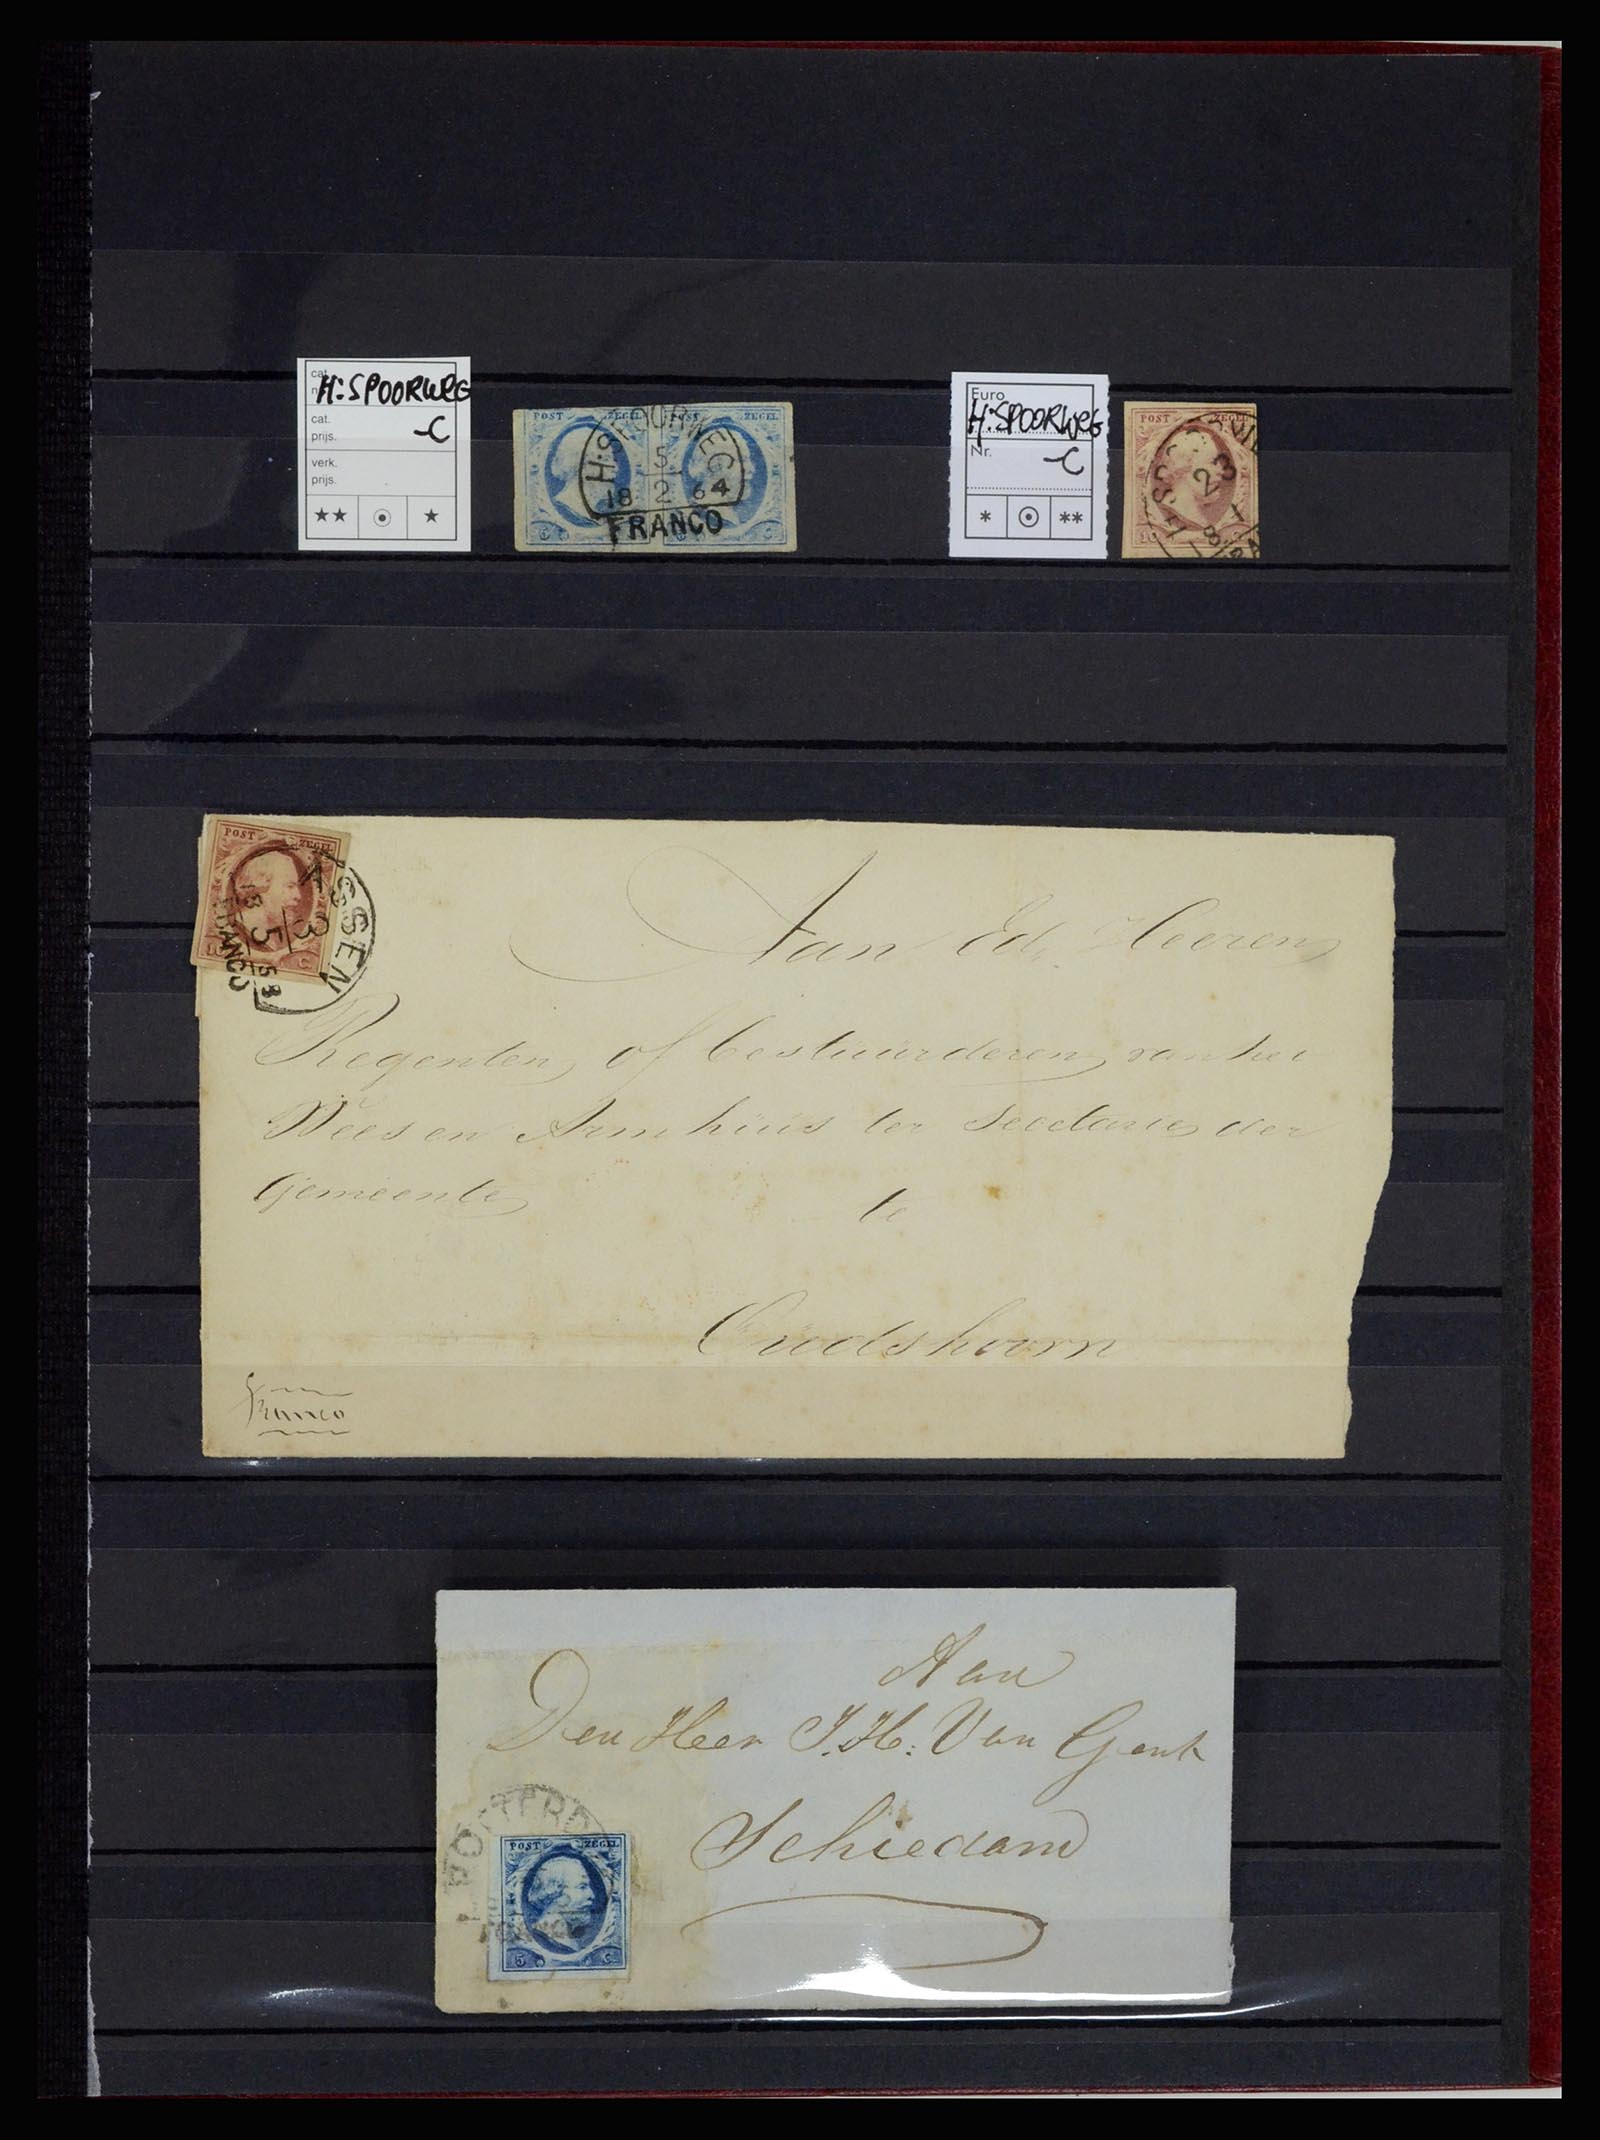 cat.
H:SPOORWEG
cat.
prijs.
-C
verk.
prijs.
POST ZEGEL POST ZEGEL
H:SPOORWEG
5
18 2 64
FRANCO
Euro
H:SPOORWEG
Nr.
-C
POST ZEGEL
23
POST ZEGEL
ASSEN
3
18 5 58
FRANCO
Aan Ed. Heeren
Regenten of bestuurderen van het
Wees en Armhuis ter Secretarie der
Gemeente
te
Oudshoorn
Franco
Aan
Den Heer J.H: Van Gent
Schiedam
ROTTERD
POST ZEGEL
FRANCO
5 C